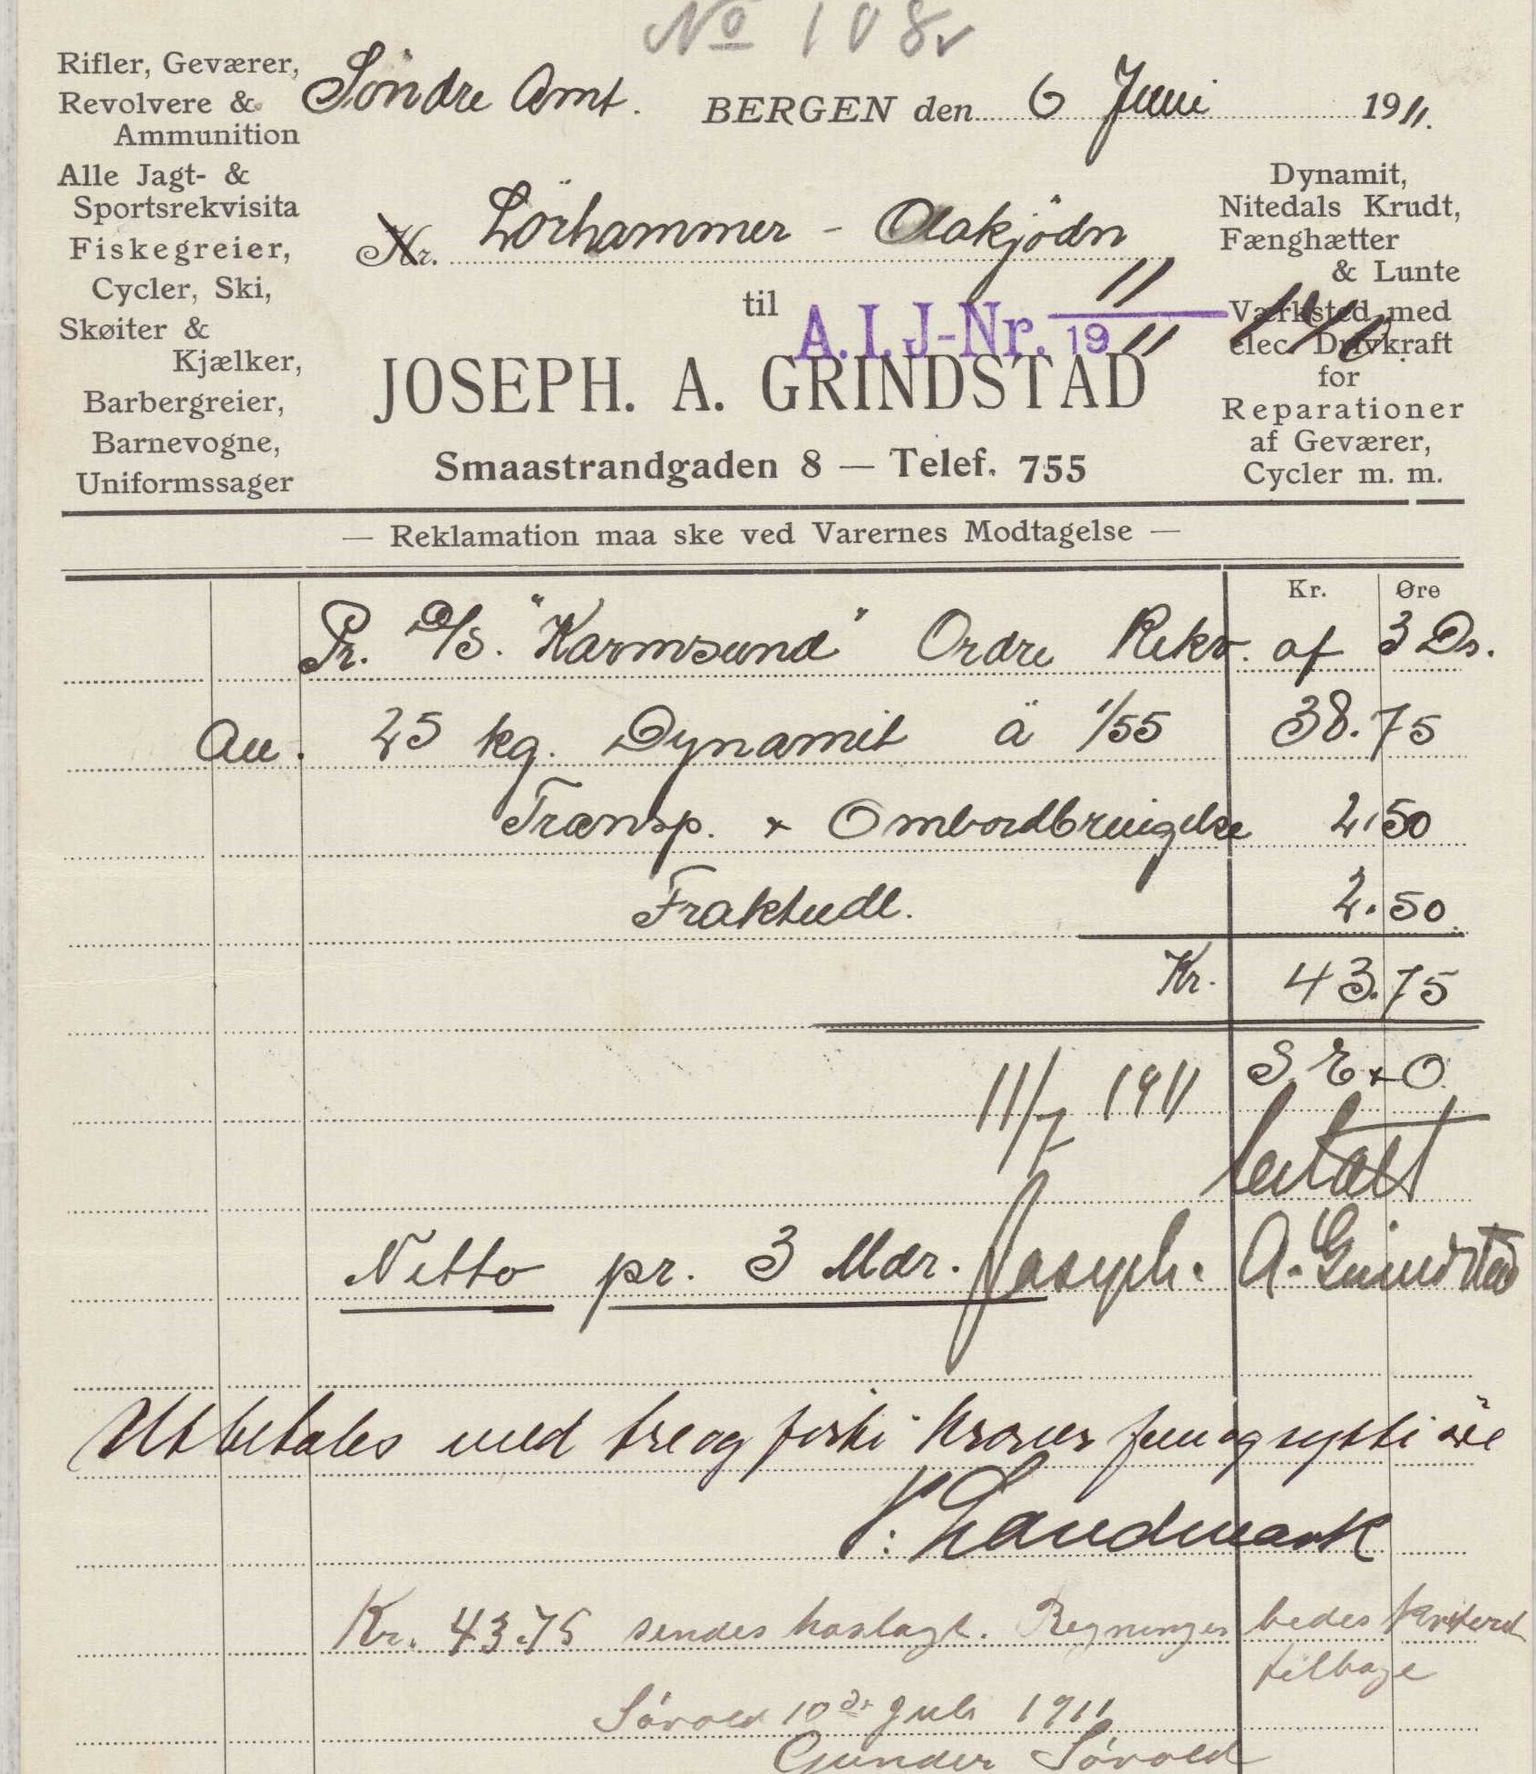 No 108
Rifler, Geværer,
Revolvere &
Ammunition
Alle Jagt- &
Sportsrekvisita
Fiskegreier,
Cycler, Ski,
Skøiter &
Kjælker,
Barbergreier,
Barnevogne,
Uniformssager
Söndre Amt. BERGEN den 6 Juni 1911.
Hr. Lörhammer - Oakjödn
til
A.I.J-Nr. 11 1911
JOSEPH. A. GRINDSTAD
Smaastrandgaden 8 — Telef. 755
Dynamit,
Nitedals Krudt,
Fænghætter
& Lunte
Værksted med
elec. Drivkraft
for
Reparationer
af Geværer,
Cycler m. m.
— Reklamation maa ske ved Varernes Modtagelse —
Kr. Øre
Pr. D/S. "Karmsund" Ordre Rekv. af 3 Ds.
Au. 25 kg. Dynamit ä 1/55 38.75
Transp. & Ombordbringelse 2.50
Fraktudl. 2.50
Kr. 43.75
S. E. & O.
11/7 1911 betalt
Netto pr. 3 Mdr. Joseph. A. Grindstad
Utbetales med treogförti kroner femogsytti öre
Landmark
Kr. 43.75 sendes haslagt. Regningen bedes kvitterd
tilbage
Sörold 10de Juli 1911
Gunder Sörold